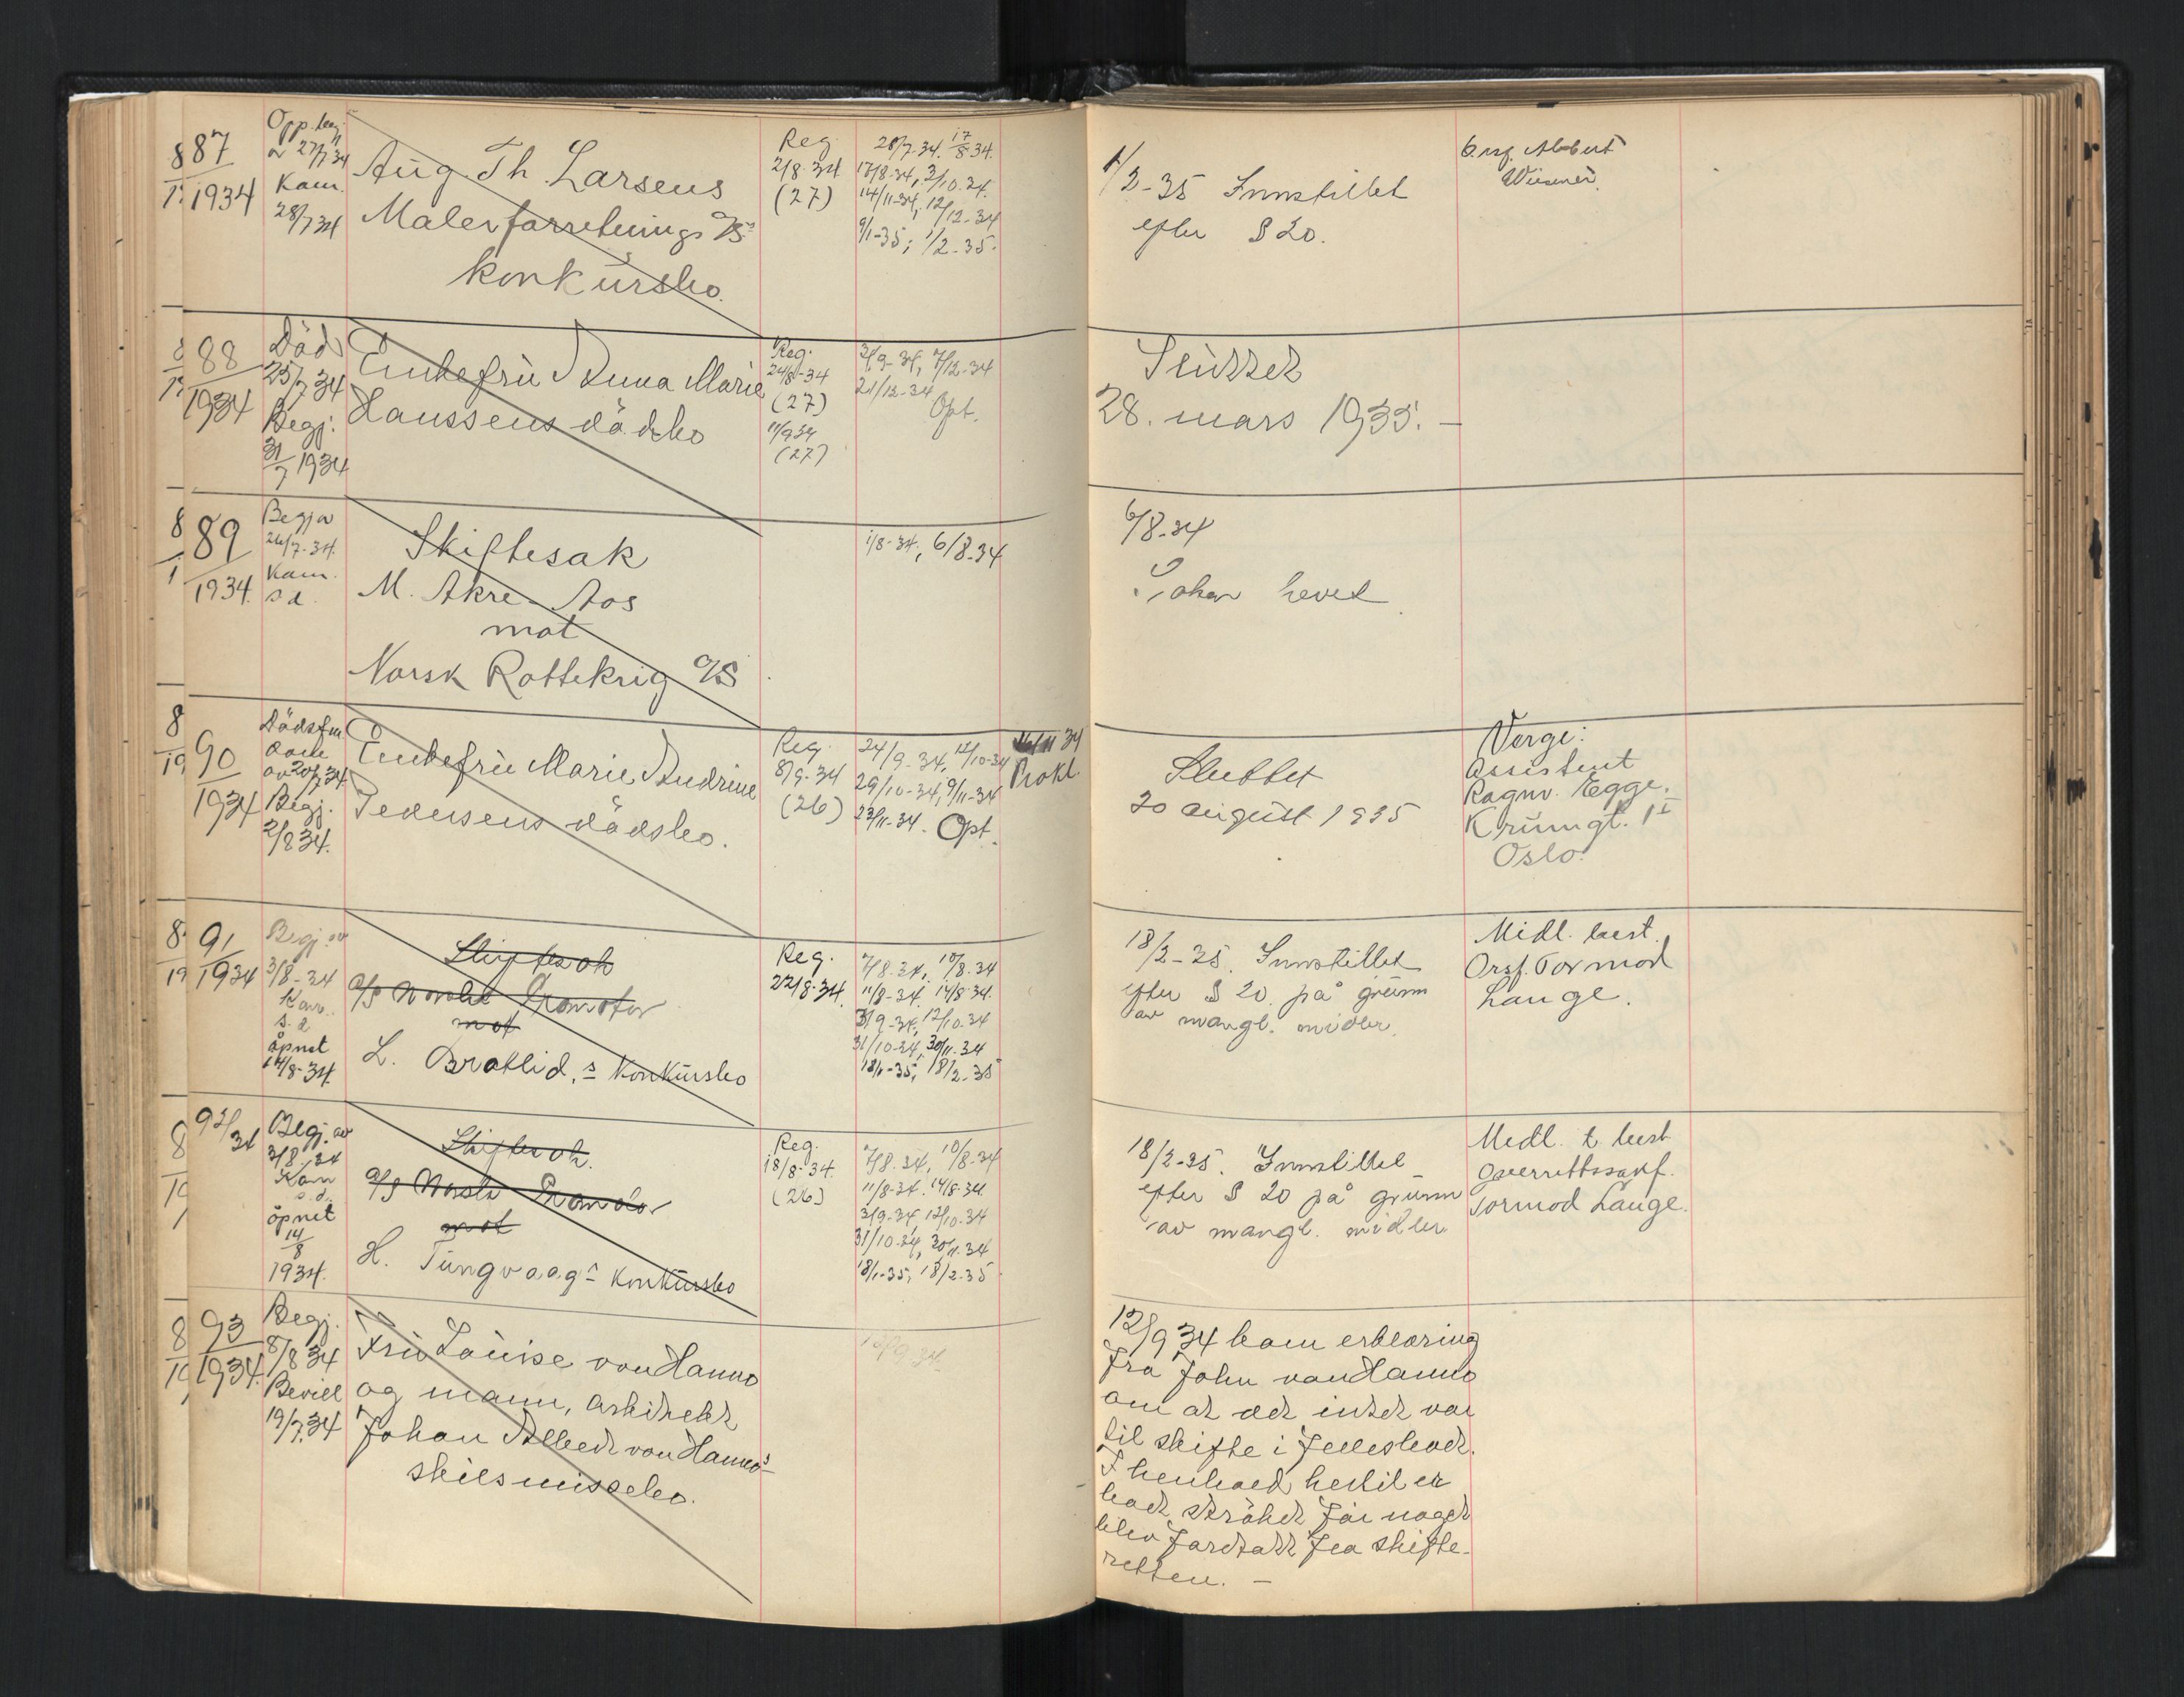 87
1934
Opp. beg.
27/7 34
Kam.
28/7 34
Aug. Th. Larsens
Malerforretnings A/S
konkursbo.
Reg.
2/8 34
(27)
28/7-34. 17/8 34.
17/8-34, 3/10-34.
14/11-34, 12/12-34
9/1-35; 1/2-35.
1/2-35 Innstillet
efter § 20.
O.rsf. Albert
Wiesener.
88
1934
Död
25/7 34
Begj:
31/7 1934
Enkefrü Anna Marie
Hanssens dödsbo
Reg.
24/8-34
(27)
11/9 34
(27)
3/9-34, 7/12-34
21/12-34
Opt.
Sluttet
28. mars 1935. –
89
1934.
Begj av
26/7-34.
Kam.
s d.
Skiftesak
M. Akre-Aos
mot
Norsk Rottekrig A/S
1/8-34, 6/8-34
6/8-34
Saken hevet
90
1934
Dödsfm
av 20/7 34
Begj.
2/8 34.
Enkefrü Marie Andrine
Pedersens dödsbo.
Reg.
8/9-34
(26)
24/9-34, 12/10-34
29/10-34, 9/11-34
23/11-34. Opt.
16/11 34
Prokl.
Sluttet
20 august 1935
Verge:
Assistent
Ragnv. Egge.
Krumgt. 1 I
Oslo.
91
1934
Begj. av
3/8-34
Kam.
s. d
åpnet
14/8-34.
Skiftesak
A/S Norsk Promotor
mot
L. Bratlid,s konkursbo
Reg.
22/8-34.
7/8-34, 10/8-34
11/8-34. 14/8-34.
3/9-34, 12/10-34
31/10-34, 30/11-34
18/1-35, 18/2-35
18/2-35. Innstillet
efter § 20. på grunn
av mangl. midler.
Midl. best.
Orsf. Tormod
Lange.
92/34
Begj. av
3/8-34
Kam
s. d.
åpnet
14/8
1934.
Skiftesak.
A/S Norsk Promotor
mot
H. Tungvaags konkursbo
Reg.
18/8-34.
(26)
7/8-34, 10/8-34
11/8-34. 14/8-34.
3/9-34, 12/10-34
31/10-34, 30/11-34
18/1-35, 18/2-35
18/2-35. Innstillet
efter § 20 på grunn
av mangl. midler.
Midl. t. best
Overrettssakf.
Tormod Lange.
93
1934.
Begj.
8/8 34
Bevill
19/7.34
Frü Louise von Hanno
og mann, arkitekt
Johan Albert von Hannos
skilsmissebo.
12/9 34.
12/9 34 kom erklæring
fra John von Hanno
om at det intet var
til skifte i fellesboet.
I henhold hertil er
boet strøket før noget
blev foretatt fra skifte-
retten. –